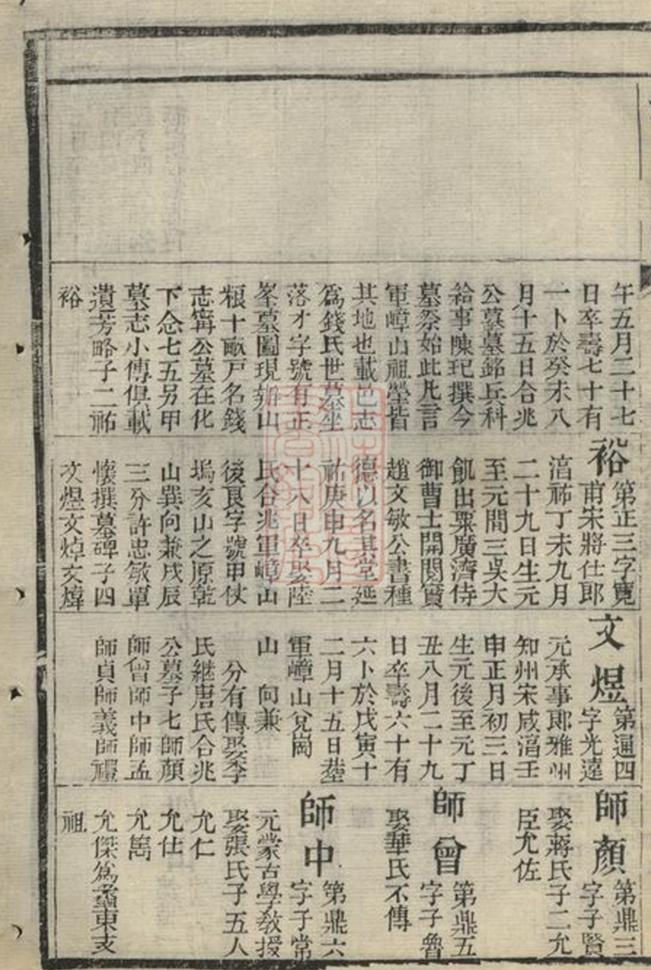 午五月二十七
日卒壽七十有
一卜於癸未八
月十五日合兆
公墓墓銘兵科
給事陳玘撰今
墓祭始此凡言
軍嶂山祖塋皆
其地也載邑志
為錢氏世墓坐
落才字號有正
峯墓圖現辦山
糧十畝戶名錢
志寗公墓在化
下念七五另甲
墓志小傳俱載
遺芳略子二祐
裕
裕 第正三字寬
甫宋將仕郎
淯祐丁未九月
二十九日生元
至元間三吳大
飢出粟廣濟侍
御曹士開閱實
趙文敏公書種
德以名其堂延
祐庚申九月二
十八日卒娶陸
氏合兆軍嶂山
後良字號甲仗
塢亥山之原乾
山巽向兼戌辰
三分許忠敏單
懷撰墓碑子四
文煜文焯文煒
文煜 第迪四
字光遠
元承事郎雅州
知州宋咸淯壬
申正月初三日
生元後至元丁
丑八月二十九
日卒壽六十有
六卜於戊寅十
二月十五日塟
軍嶂山兌崗
山 向兼
分有傳娶李
氏繼唐氏合兆
公墓子七師顏
師曾師中師孟
師貞師義師禮
師顏 第鼎三
字子賢
娶蔣氏子二允
臣允佐
師曾 第鼎五
字子魯
娶華氏不傳
師中 第鼎六
字子常
元蒙古學教授
娶張氏子五人
允仁
允仕
允嵩
允傑為臺東支
祖